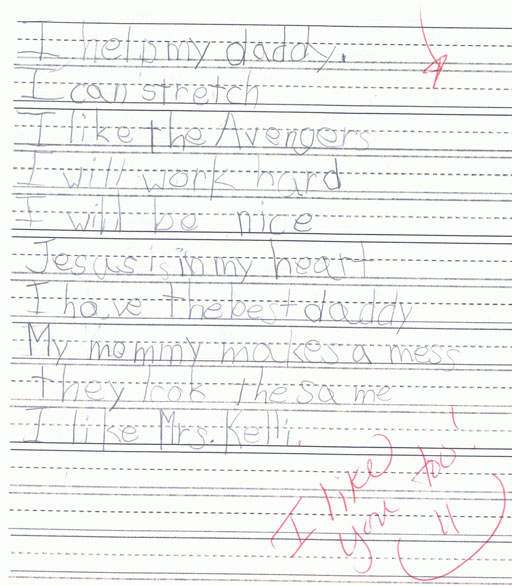 I help my daddy.
I can stretch
I like the Avengers
I will work hard
I will be nice
Jesus is in my heart
I have the best daddy
My mommy makes a mess
they look the same
I like Mrs. Kelli.
I like
you too!